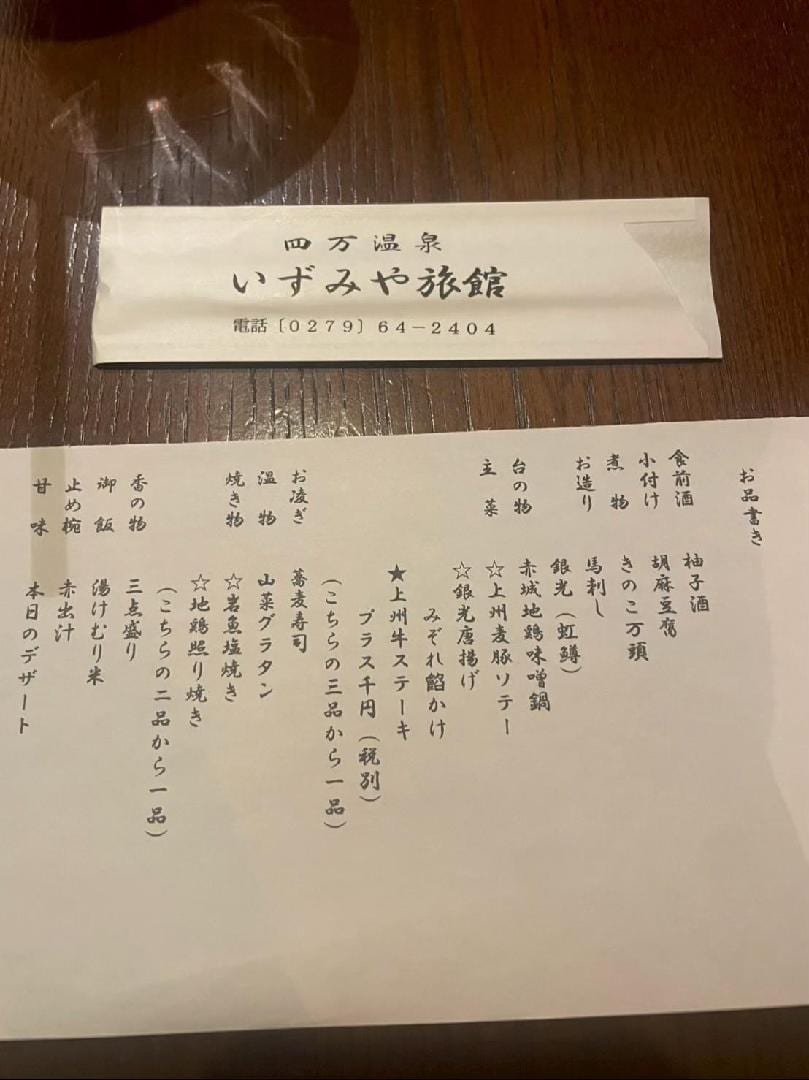 四万温泉
いずみや旅館
電話〔0279〕64－2404
お品書き
食前酒 柚子酒
小付け 胡麻豆腐
煮物 きのこ万頭
お造り 馬刺し
銀光（虹鱒）
台の物 赤城地鶏味噌鍋
主菜 ☆上州麦豚ソテー
☆銀光唐揚げ
みぞれ餡かけ
★上州牛ステーキ
プラス千円（税別）
（こちらの三品から一品）
お凌ぎ 蕎麦寿司
温物 山菜グラタン
焼き物 ☆岩魚塩焼き
☆地鶏照り焼き
（こちらの二品から一品）
香の物 三点盛り
御飯 湯けむり米
止め椀 赤出汁
甘味 本日のデザート